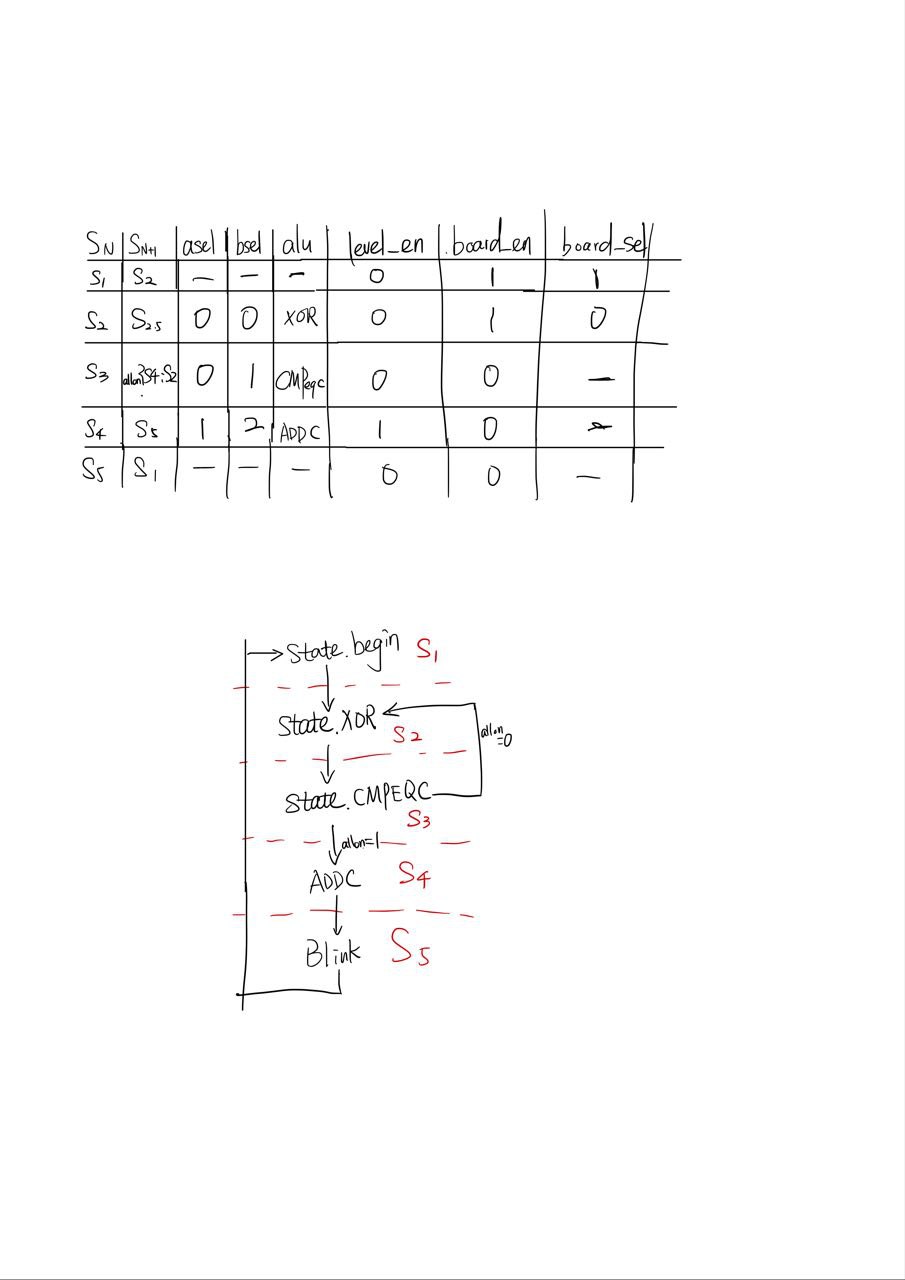 SN SN+1 asel bsel alu level_en board_en board_sel
S1 S2 — — — 0 1 1
S2 S2.5 0 0 XOR 0 1 0
S3 allon?S4:S2 0 1 CMPeqc 0 0 —
S4 S5 1 2 ADDC 1 0 —
S5 S1 — — — 0 0 —
State.begin S1
State.XOR
S2
allon
=0
State.CMPEQC
S3
allon=1
ADDC S4
Blink S5